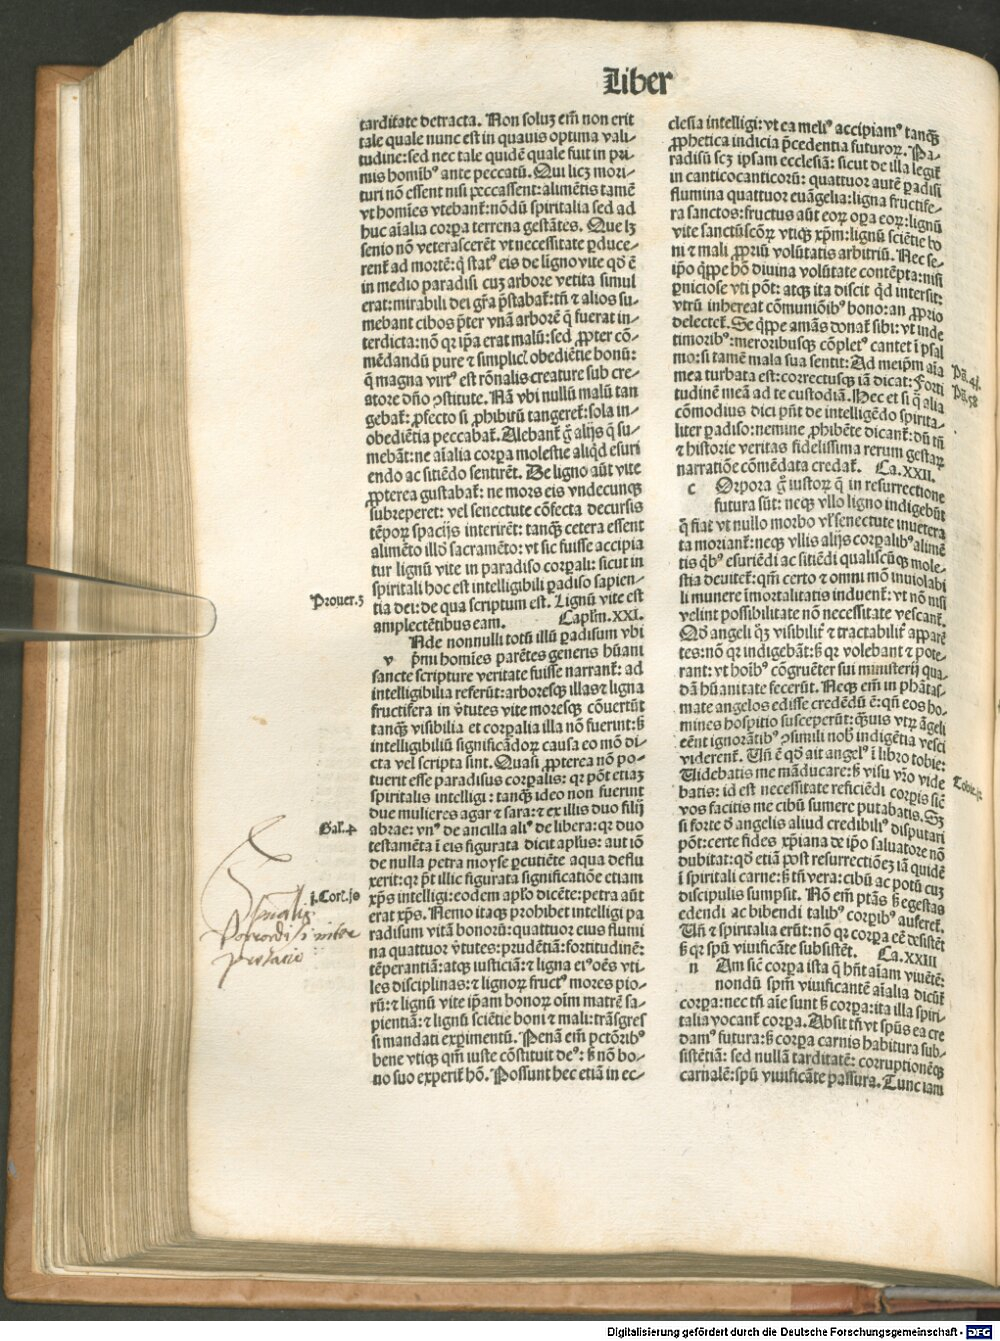 Liber
tarditate detracta. Non soluꝫ em̄ non erit
tale quale nunc est in quauis optima vali⸗
tudine: sed nec tale quidē quale fuit in pri⸗
mis homib⁹ ante peccatū. Qui licꝫ mori⸗
turi nō essent nisi peccassent: alimētis tamē
vt homīes vtebant᷑: nōdū spiritalia sed ad
huc aīalia corꝑa terrena gestātes. Que lꝫ
senio nō veterascerēt vt necessitate ꝑduce⸗
rent᷑ ad mortē: q̄ stat⁹ eis de ligno vite qd̄ ē
in medio paradisi cuꝫ arbore vetita simul
erat: mirabili dei gr̄a p̄stabat᷑: tn̄ ⁊ alios su⸗
mebant cibos p̄ter vnā arborē q̄ fuerat in⸗
terdicta: nō qꝛ ip̄a erat malū: sed ꝓpter cō⸗
mēdandū pure ⁊ simplicꝭ obediētie bonū:
q̄ magna virt⁹ est rōnalis creature sub cre⸗
atore dn̄o ꝯstitute. Nā vbi nullū malū tan
gebat᷑: ꝓfecto si ꝓhibitū tangeret᷑: sola in⸗
obediētia peccabat᷑. Alebant᷑ g̊ alijs q̄ su⸗
mebāt: ne aīalia corꝑa molestie aliqd̄ esuri
endo ac sitiēdo sentirēt. De ligno aūt vite
ꝓpterea gustabat᷑: ne mors eis vndecunqꝫ
subreperet: vel senectute cōfecta decursis
tēpoꝝ spacijs interirēt: tanqꝫ cetera essent
alimēto illd̄ sacramēto: vt sic fuisse accipia
tur lignū vite in paradiso corꝑali: sicut in
spiritali hoc est intelligibili ꝑadiso sapien⸗
Prouer.3
tia dei: de qua scriptum est. Lignū vite est
amplectētibus eam. Caplm̄. XXI.
Nde nonnulli totū illū ꝑadisum vbi
v p̄mi homīes parētes generis hūani
sancte scripture veritate fuisse narrant᷑: ad
intelligibilia referūt: arboresqꝫ illas ⁊ ligna
fructifera in v̄tutes vite moresqꝫ cōuertūt
tanqꝫ visibilia et corꝑalia illa nō fuerint: sꝫ
intelligibiliū significādoꝝ causa eo mō di⸗
cta vel scripta sint. Quasi ꝓpterea nō po⸗
tuerit esse paradisus corꝑalis: qꝛ pōt etiaꝫ
spiritalis intelligi: tanqꝫ ideo non fuerint
due mulieres agar ⁊ sara: ⁊ ex illis duo filij
Gal̄.4
abrae: vn⁹ de ancilla ali⁹ de libera: qꝛ duo
testamēta ī eis figurata dicit apl̄us: aut iō
de nulla petra moyse ꝑcutiēte aqua deflu
xerit: qꝛ pōt illic figurata significatiōe etiam
j.Cor̄.10
xp̄s intelligi: eodem apl̄o dicēte: petra aūt
erat xp̄s. Nemo itaqꝫ prohibet intelligi pa
radisum vitā bonorū: quattuor eius flumi
na quattuor v̄tutes: prudētiā: fortitudinē:
tēperantiā: atqꝫ iusticiā: ⁊ ligna ei⁹ oēs vti⸗
les disciplinas: ⁊ lignoꝝ fruct⁹ mores pio⸗
rū: ⁊ lignū vite ip̄am bonoꝝ oīm matrē sa⸗
pientiā: ⁊ lignū sciētie boni ⁊ mali: trāsgres
si mandati exꝑimentū. Penā em̄ pctōrib⁹
bene vtiqꝫ qm̄ iuste cōstituit de⁹: sꝫ nō bo⸗
no suo experit᷑ hō. Possunt hec etiā in ec⸗
clesia intelligi: vt ea meli⁹ accipiam⁹ tanqꝫ
ꝓphetica indicia p̄cedentia futuroꝝ. Pa⸗
radisū scꝫ ipsam ecclesiā: sicut de illa legit᷑
in canticocanticorū: quattuor autē ꝑadisi
flumina quattuor euāgelia: ligna fructife⸗
ra sanctos: fructus aūt eoꝝ oꝑa eoꝝ: lignū
vite sanctūscōꝝ vtiqꝫ xp̄m: lignū sciētie bo
ni ⁊ mali ꝓpriū volūtatis arbitriū. Nec se⸗
ip̄o qͥppe hō diuina volūtate contēpta: nisi
ꝑniciose vti pōt: atqꝫ ita discit qd̄ intersit:
vtrū inhereat cōmuniōib⁹ bono: an ꝓprio
delectet᷑. Se qͥppe amās donat᷑ sibi: vt inde
timorib⁹: meroribusqꝫ cōplet⁹ cantet ī psal
mo: si tamē mala sua sentit: Ad meip̄m aīa
Ps̄.41.
mea turbata est: correctusqꝫ iā dicat: Forti
Ps̄.58
tudinē meā ad te custodiā. Hec et si q̄ alia
cōmodius dici pn̄t de intelligēdo spirita⸗
liter ꝑadiso: nemine ꝓhibēte dicant᷑: dū tn̄
⁊ historie veritas fidelissima rerum gestaꝝ
narratiōe cōmēdata credat᷑. Ca. XXII.
c Orpora g̊ iustoꝝ q̄ in resurrectione
futura sūt: neqꝫ vllo ligno indigebūt
q̄ fiat vt nullo morbo vl̄ senectute inuetera
ta moriant᷑: neqꝫ vllis alijs corꝑalib⁹ alimē
tis qͥb⁹ esuriēdi ac sitiēdi qualiscūqꝫ mole⸗
stia deuitet᷑: qm̄ certo ⁊ omni mō inuiolabi
li munere īmortalitatis induent᷑: vt nō nisi
velint possibilitate nō necessitate vescant᷑.
Qd̄ angeli qͦꝫ visibilit᷑ ⁊ tractabilit᷑ apparē
tes: nō qꝛ indigebāt: sꝫ qꝛ volebant ⁊ pote⸗
rant: vt hoīb⁹ cōgruēter sui ministerij qua⸗
dā hūanitate fecerūt. Neqꝫ em̄ in phātas⸗
mate angelos edisse credēdū ē: qn̄ eos ho⸗
mines hospitio susceperūt: qͣꝫuis vtꝝ āgeli
eēnt ignorātib⁹ ꝯsimili nob̄ indigētia vesci
viderent᷑. Un̄ ē qd̄ ait angel⁹ ī libro tobie:
Tobie.12
Uidebatis me māducare: sꝫ visu vr̄o vide
batis: id est necessitate reficiēdi corꝑis sic̄
vos facitis me cibū sumere putabatis. Sꝫ
si forte d̄ angelis aliud credibili⁹ disputari
pōt: certe fides xp̄iana de ip̄o saluatore nō
dubitat: qd̄ etiā post resurrectiōeꝫ iā quidē
ī spiritali carne: sꝫ tn̄ vera: cibū ac potū cuꝫ
discipulis sumpsit. Nō em̄ ptās sꝫ egestas
edendi ac bibendi talib⁹ corꝑib⁹ auferet᷑.
Un̄ ⁊ spiritalia erūt: nō qꝛ corꝑa eē desistēt
sꝫ qꝛ spū viuificāte subsistēt. Ca. XXIII
n Am sic̄ corꝑa ista q̄ hn̄t aīam viuētē:
nondū spm̄ viuificantē aīalia dicūt᷑
corꝑa: nec tn̄ aīe sunt sꝫ corꝑa: ita illa spiri⸗
talia vocant᷑ corꝑa. Absit tn̄ vt spūs ea cre
dam⁹ futura: sꝫ corꝑa carnis habitura sub⸗
sistētiā: sed nullā tarditatē: corruptionēqꝫ
carnalē: spū viuificāte passura. Tunc iam
Digitalisierung gefördert durch die Deutsche Forschungsgemeinschaft - DFG